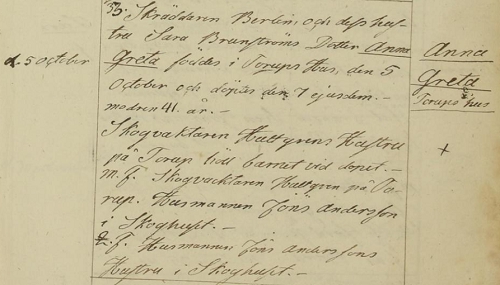 33. Skräddaren Berlin, och dess hus-
tru Sara Brunströms Dotter Anna
Greta föddes i Torups Hus, den 5
October och döptes den 7 ejusdem. -
modren 41. år. -
Skogvaktaren Hultgrens Hustru
på Torup höll barnet vid dopet. -
m. f. Skogvacktaren Hultgren på To-
rup. Husmannen Jöns Andersson
i Skoghuset. -
Q. f. Husmannen Jöns Anderssons
Hustru i Skoghuset. -
d. 5 October
Anna
Greta
Torups hus
+